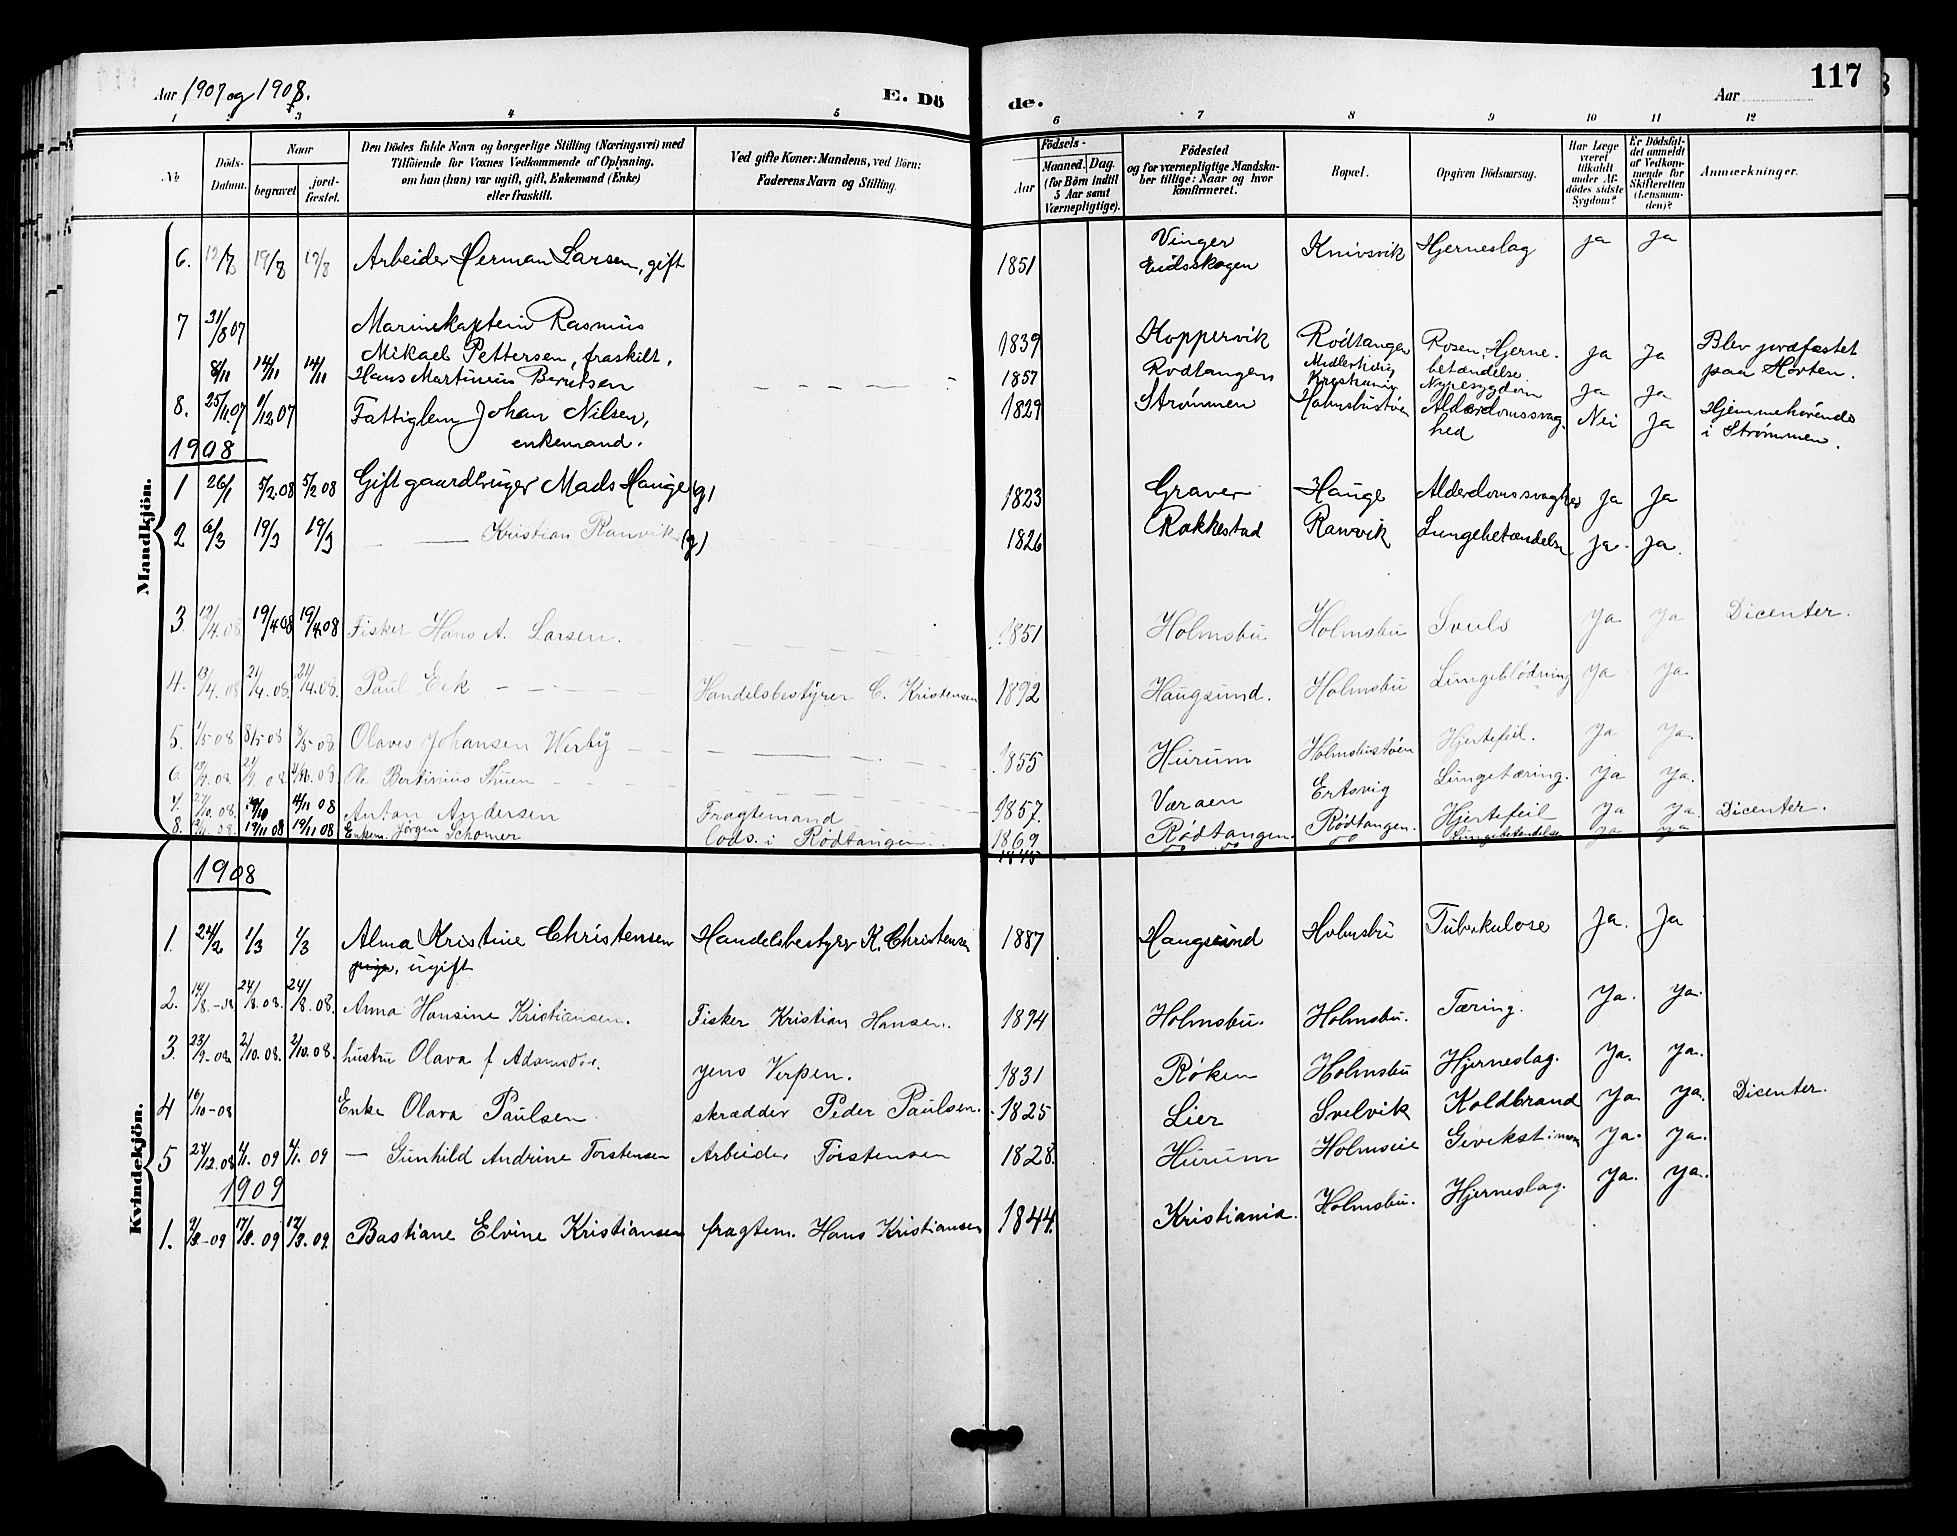 Aar 1907 og 1908.
E. Dö
de.
Aar
117
1 2 3 4 5 6 7 8 9 10 11 12
No
Döds-Datum.
Naar
begravet
jord-fæstet.
Den Dödes fulde Navn og borgerlige Stilling (Næringsvei) med
Tilföiende for Voxnes Vedkommende af Oplysning,
om han (hun) var ugift, gift, Enkemand (Enke)
eller fraskilt.
Ved gifte Koner: Mandens, ved Börn:
Faderens Navn og Stilling.
Födsels-
Aar
Maaned. Dag.
(for Börn indtil
5 Aar samt
Værnepligtige).
Födested
og for værnepligtige Mandska-
ber tillige: Naar og hvor
Konfirmeret.
Bopæl.
Opgiven Dödsaarsag.
Har Læge
været
tilkaldt
under Af-
dödes sidste
Sygdom?
Er Dödsfal-
det anmeldt
af Vedkom-
mende for
Skifteretten
(Lensman-
den)?
Anmærkninger.
Mandkjön.
6. 19/8 17/8 Arbeider Herman Larsen, gift 1851 Vinger Eidsskogen Knivsvik Hjerneslag ja ja
7 31/8 07 Marinekaptein Rasmus
Mikael Pettersen, fraskilt. 1839 Koppervik Rødtangen Rosen, Hjerne-
betændelse ja ja Blev jordfæstet
paa Horten.
8/11 14/11 14/11 Hans Martinius Berntsen 1857 Rødtangen Midlertidig Kristiania Nyresygdom ja ja
8. 25/11 07 1/12 07 Fattiglem Johan Nilsen,
enkemand. 1829 Strømmen Holmsbustøen Alderdomssvag-
hed Nei ja Hjemmehörende
i Strømmen.
1908
1 26/1 5/2 08 5/2 08 Gift gaardbruger Mads Hauge (g) 1823 Graver Hauge Alderdomssvaghed ja ja
2 6/3 19/3 19/3 — — Kristian Ranvik (g) 1826 Rakkestad Ranvik Lungebetændelse ja. ja.
3. 12/4.08 19/4 08 19/4 08 Fisker Hans A. Larsen. 1851 Holmsbu Holmsbu ja ja Dicenter.
4. 13/4.08 21/4.08. 21/4.08. Paul Eek Handelsbestyrer C. Kristensen 1892 Haugsund. Holmsbu Lungeblödning ja ja.
5. 1/5 08 8/5 08 8/5 08 Olaves Johansen Werby 1855 Hurum Holmsbustøen Hjertefeil. ja ja.
6. Ole Bertinius Thuen 1857. Væraen Ertsvig Lungetæring. ja ja.
7. 27/10.08. 4/11 08 Anton Andersen Fragtemand 1869 Rødtangen. Rødtangen. Hjertefeil ja ja. Dicenter.
8. 19/11 08 19/11 08 Enkem. Jørgen Schomer Lods. i Rødtangen. do do do Lungebetændelse ja ja
Kvindekjön.
1908
1. 24/2 1/3 1/3 Alma Kristine Christensen
pige, ugift Handelsbestyrer K. Christensen 1887 Haugsund Holmsbu Tuberkulose ja. ja
2. 14/8-08 24/8.08. 24/8.08. Anna Hansine Kristiansen. Fisker Kristian Hansen. 1894 Holmsbu. Holmsbu. Tæring. ja. ja.
3. 23/9.08. 2/10.08. 2/10.08. hustru Olava f Adamsdr. jens Verpen. 1831 Røken Holmsbu Hjerneslag. ja. ja.
4 16/10-08 Enke Olava Paulsen skrædder Peder Paulsen. 1825 Lier Svelvik Koldbrand ja ja. Dicenter.
5 27/12.08 4/1. 09 4/1. 09 — Gunhild Andrine Torstensen Arbeider Torstensen 1828. Hurum Holmseie ja. ja.
1909
1. 9/8-09 17/8. 09 17/8.09. Bastiane Elvine Kristiansen fragtem. Hans Kristiansen 1844. Kristiania. Holmsbu. Hjerneslag. ja. ja.